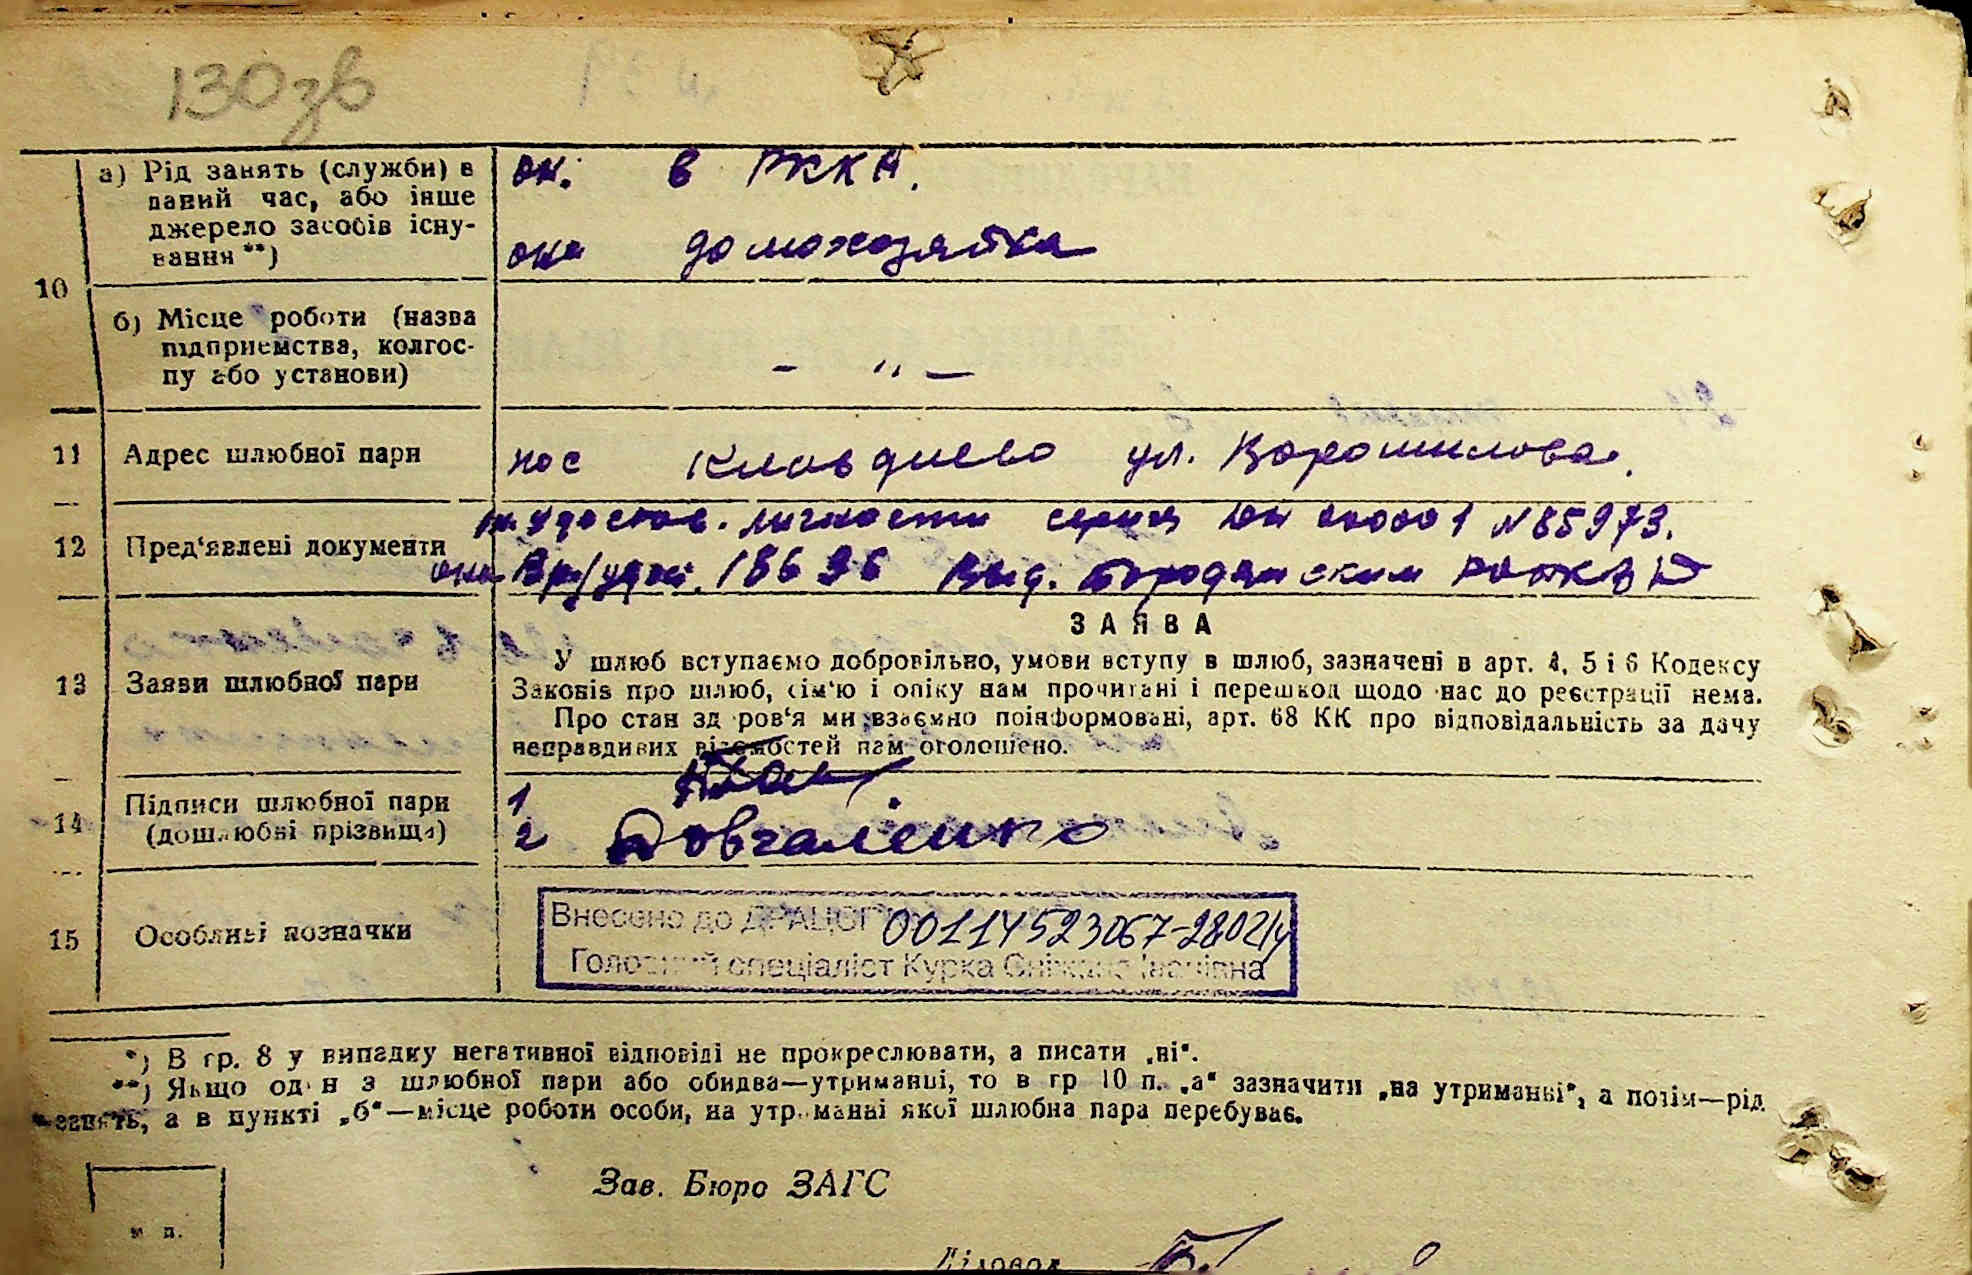 130зв
а) Рід занять (служби) в
даний час, або інше
джерело засобів існу-
вання **)
он. в РККА.
она домохозяйка
10
б) Місце роботи (назва
підприємства, колгос-
пу або установи)
— " —
11 Адрес шлюбної пари
пос Клавдиево ул. Ворошилова.
12 Пред'явлені документи
он удостов. личности серии №85973.
она Вр/удос. 18696 Выд. Бородянским
13 Заяви шлюбної пари
ЗАЯВА
У шлюб вступаємо добровільно, умови вступу в шлюб, зазначені в арт. 4, 5 і 6 Кодексу
Законів про шлюб, сім'ю і опіку нам прочитані і перешкод щодо нас до реєстрації нема.
Про стан здоров'я ми взаємно поінформовані, арт. 68 КК про відповідальність за дачу
неправдивих відомостей нам оголошено.
14 Підписи шлюбної пари
(дошлюбні прізвища)
1
2 Довгаленко
15 Особливі позначки
Внесено до ДРАЦСГ 00114523067-2802
Головний спеціаліст Курка Сніжана Іванівна
*) В гр. 8 у випадку негативної відповіді не прокреслювати, а писати „ні“.
**) Якщо один з шлюбної пари або обидва—утриманці, то в гр 10 п. „а“ зазначити „на утриманні“, а потім—рід
занять, а в пункті „б“—місце роботи особи, на утриманні якої шлюбна пара перебуває.
Зав. Бюро ЗАГС
м. п.
Діловод